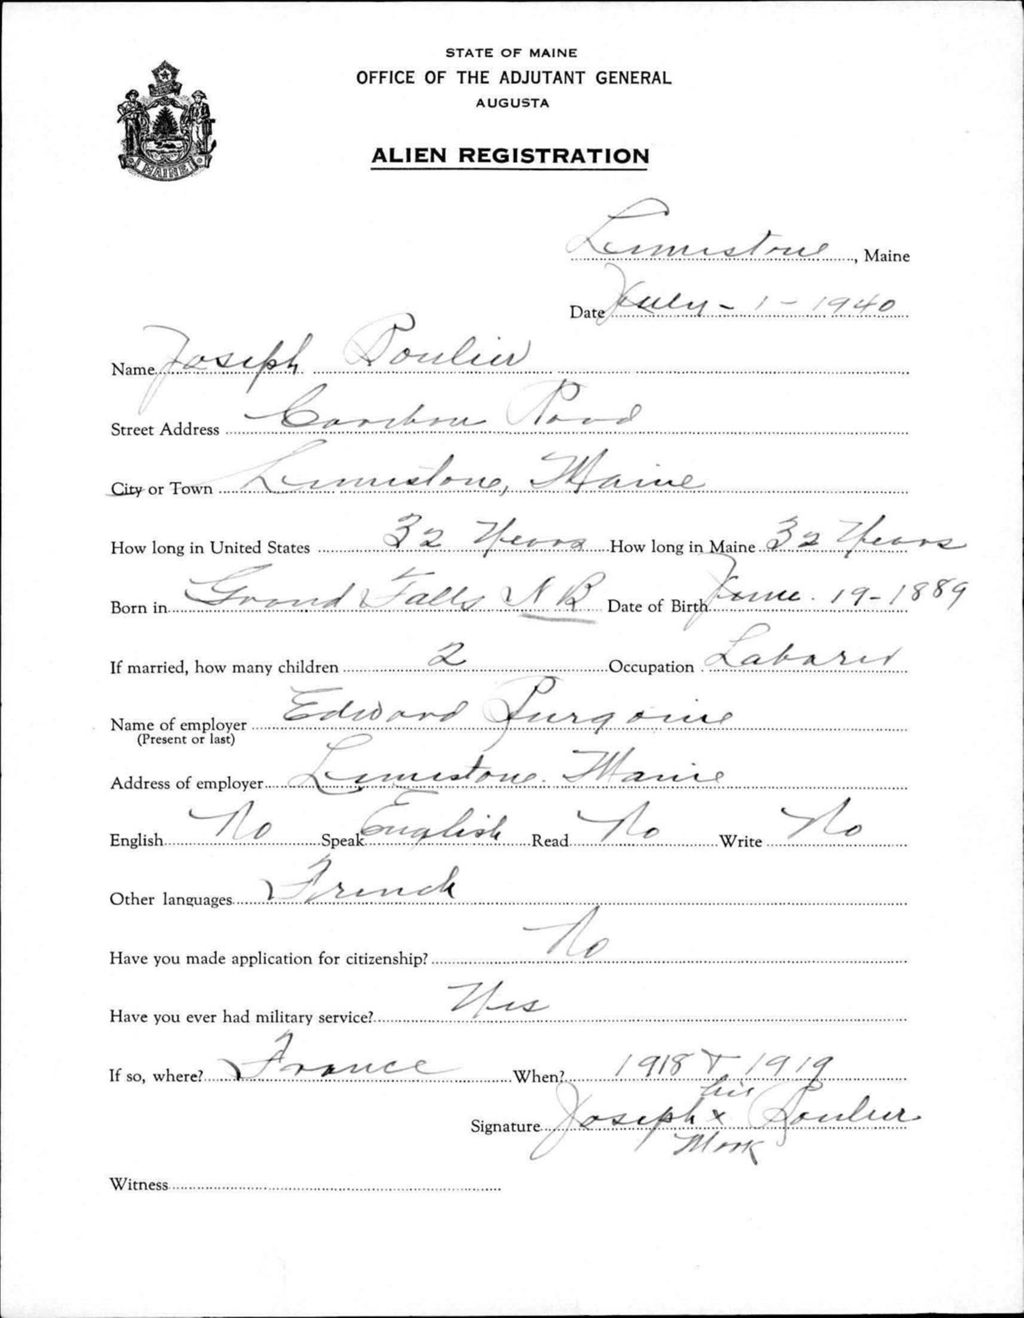 STATE OF MAINE
OFFICE OF THE ADJUTANT GENERAL
AUGUSTA
ALIEN REGISTRATION
MAINE
Limestone, Maine
Date July - 1 - 1940
Name Joseph Poulier
Street Address Caribou Road
City or Town Limestone, Maine
How long in United States 32 Years How long in Maine 32 Years
Born in Grand Falls N B Date of Birth June. 19-1889
If married, how many children 2 Occupation Laborer
Name of employer Edward Purgoine
(Present or last)
Address of employer Limestone. Maine
English No Speak English Read No Write No
Other languages French
Have you made application for citizenship? No
Have you ever had military service? Yes
If so, where? France When? 1918 + 1919
his
Signature Joseph x Poulier
Mark
Witness